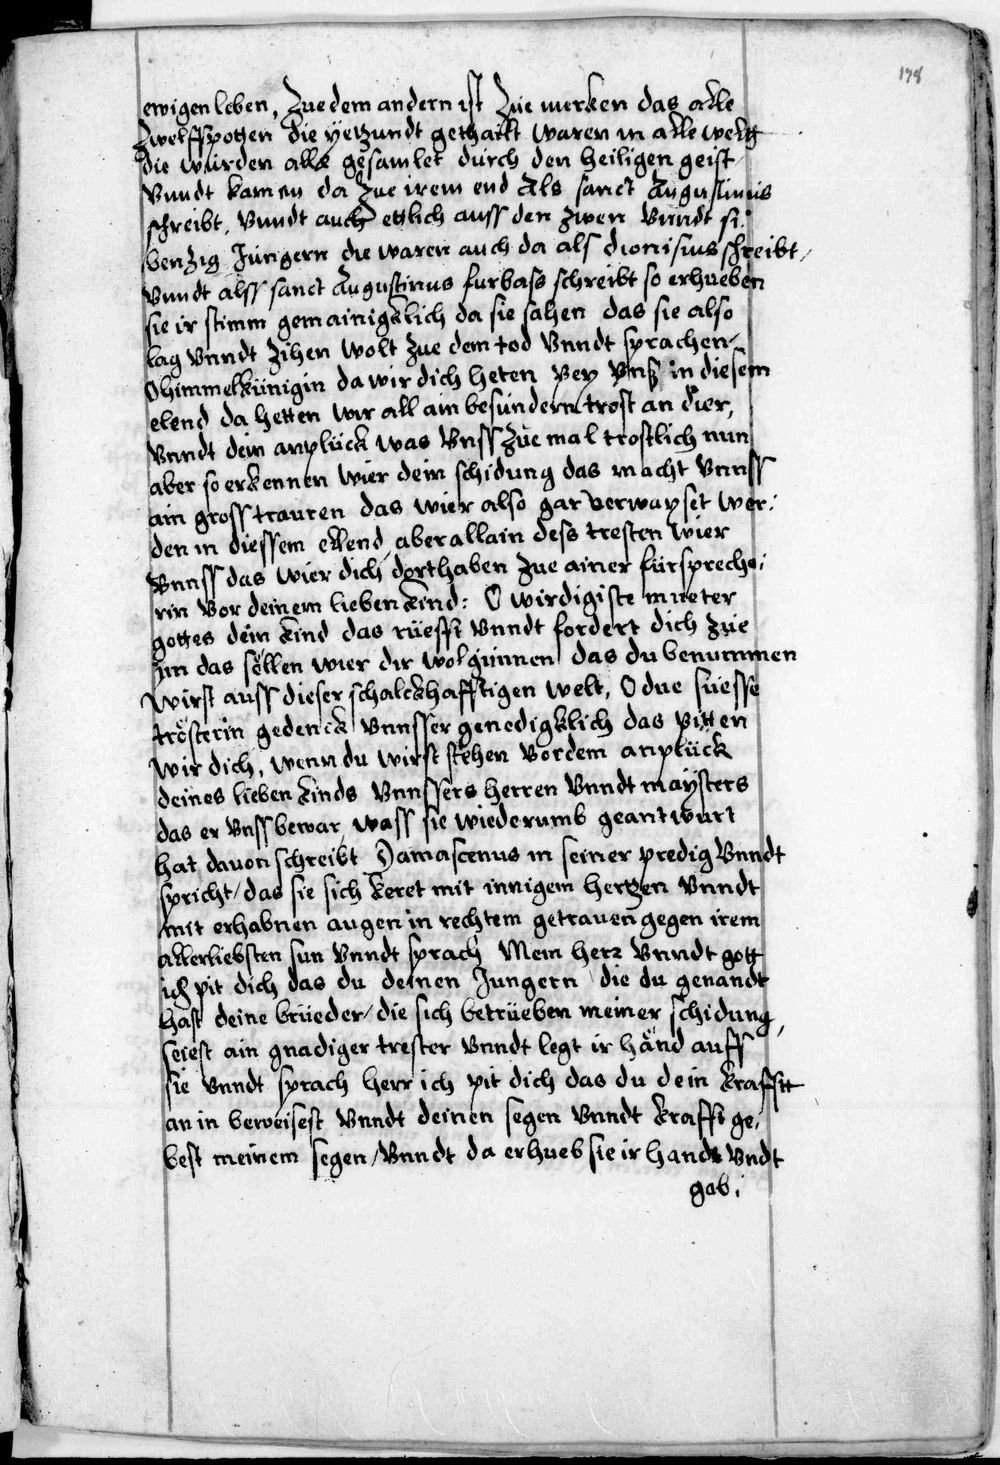 178
ewigen leben, Zue dem andern ist Zue merken das alle
Zwelffpotten die yetzundt gethailt waren in alle welt
die wurden alle gesamlet durch den heiligen geist
Vnndt kamen da Zue irem end Als sanct Augustinus
schreibt, Vnndt auch ettlich auss den zwen Vnndt si:
benzig Jungern die waren auch da als dionisius schreibt,
Vnndt alss sanct Augustinus furbass schreibt so erhueben
sie ir stimm gemainigklich da sie sahen das sie also
lag Vnndt Zihen wolt Zue dem tod Vnndt sprachen
O himmelkünigin da wir dich heten bey Vnß in diesem
elend da hetten wir all ain besundern trost an dier,
Vnndt dein anplück was Vnss Zue mal trostlich nun
aber so erkennen wier dein schidung das macht Vnnss
ain gross trauren das wier also gar verwayset wer:
den in diessem ellend, aber allain dess tresten wier
Vnnss das wier dich dort haben Zue ainer fürspreche:
rin Vor deinem lieben kind: O wirdigiste mueter
gottes dein kind das rüefft Vnndt fordert dich Zue
im das sollen wier dir wol günnen das du benummen
wirst auss dieser schalckhafftigen welt, O due suesse
trösterin gedenck Vnnsser genedigklich das pitten
wir dich, wenn du wirst stehen Vor dem anplück
deines lieben kinds Vnnssers herren Vnndt maysters
das er Vnss bewar, wass sie wiederumb geantwurt
hat davon schreibt Damascenus in seiner predig Vnndt
spricht / das sie sich keret mit innigem hertzen Vnndt
mit erhabnen augen in rechtem getrauen gegen irem
allerliebsten sun Vnndt sprach Mein herr Vnndt gott
ich pit dich das du deinen Jungern die du genandt
hast deine brüeder / die sich betrüeben meiner schidung,
seiest ain gnadiger trester Vnndt legt ir händ auff
sie Vnndt sprach herr ich pit dich das du dein krafftt
an in beweisest Vnndt deinen segen Vnndt krafft ge:
best meinem segen / Vnndt da erhueb sie ir handt Vndt
gab: